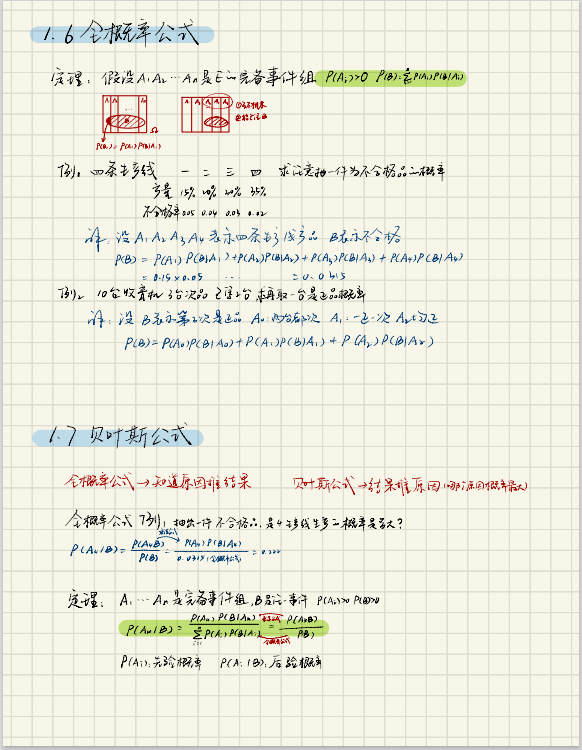 1.6 全概率公式
定理：假设A₁A₂…Aₙ是E的完备事件组 P(Aᵢ)>0 P(B)=ΣP(Aᵢ)P(B|Aᵢ)
例1. 四条生产线 一 二 三 四 求任意抽一件为不合格品的概率
产量 15% 20% 30% 35%
不合格率 0.05 0.04 0.03 0.02
解：设A₁A₂A₃A₄表示四条生产线产品 B表示不合格
P(B)=P(A₁)P(B|A₁)+P(A₂)P(B|A₂)+P(A₃)P(B|A₃)+P(A₄)P(B|A₄)
=0.15×0.05 … =0.0315
例2 10台收音机 3台次品 已售2台 求再取一台是正品概率
解：设B表示第3次是正品 A₀：两台都次 A₁：一正一次 A₂：均正
P(B)=P(A₀)P(B|A₀)+P(A₁)P(B|A₁)+P(A₂)P(B|A₂)
1.7 贝叶斯公式
全概率公式→知道原因推结果 贝叶斯公式→结果推原因(哪个原因概率最大)
全概率公式例1，抽出一件不合格品，是4生产线生产的概率是多大？
P(A₄|B)=P(A₄B)/P(B)=P(A₄)P(B|A₄)/0.0315(全概率公式)=0.222
定理：A₁…Aₙ是完备事件组，B是任一事件 P(Aᵢ)>0 P(B)>0
P(Aₖ|B)=P(Aₖ)P(B|Aₖ)/ΣP(Aᵢ)P(B|Aᵢ)=P(AₖB)/P(B)
P(Aᵢ)：先验概率 P(Aᵢ|B)：后验概率